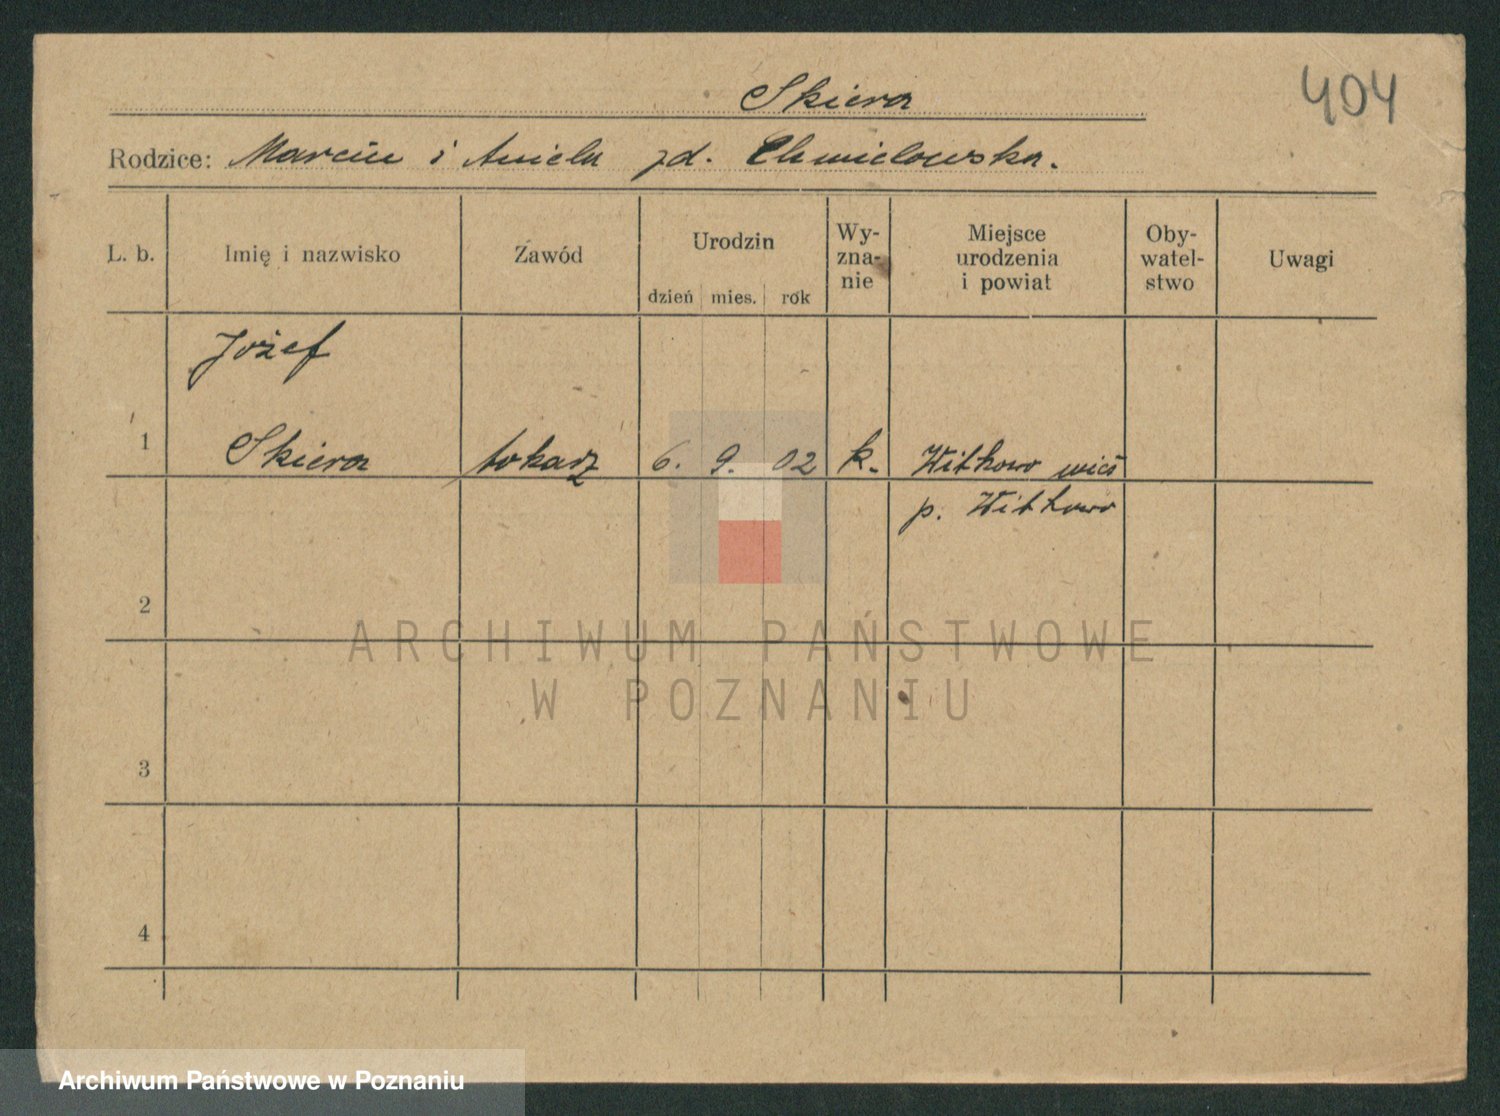 404
Skiera
Rodzice: Marcin i Aniela zd. Chmielowska.
L. b.
Imię i nazwisko
Zawód
Urodzin
dzień mies. rok
Wy-
zna-
nie
Miejsce
urodzenia
i powiat
Oby-
watel-
stwo
Uwagi
Józef
1 Skiera tokarz 6. 9. 02 k. Witkowo wieś
p. Witkowo
2
ARCHIWUM PAŃSTWOWE
W POZNANIU
3
4
Archiwum Państwowe w Poznaniu